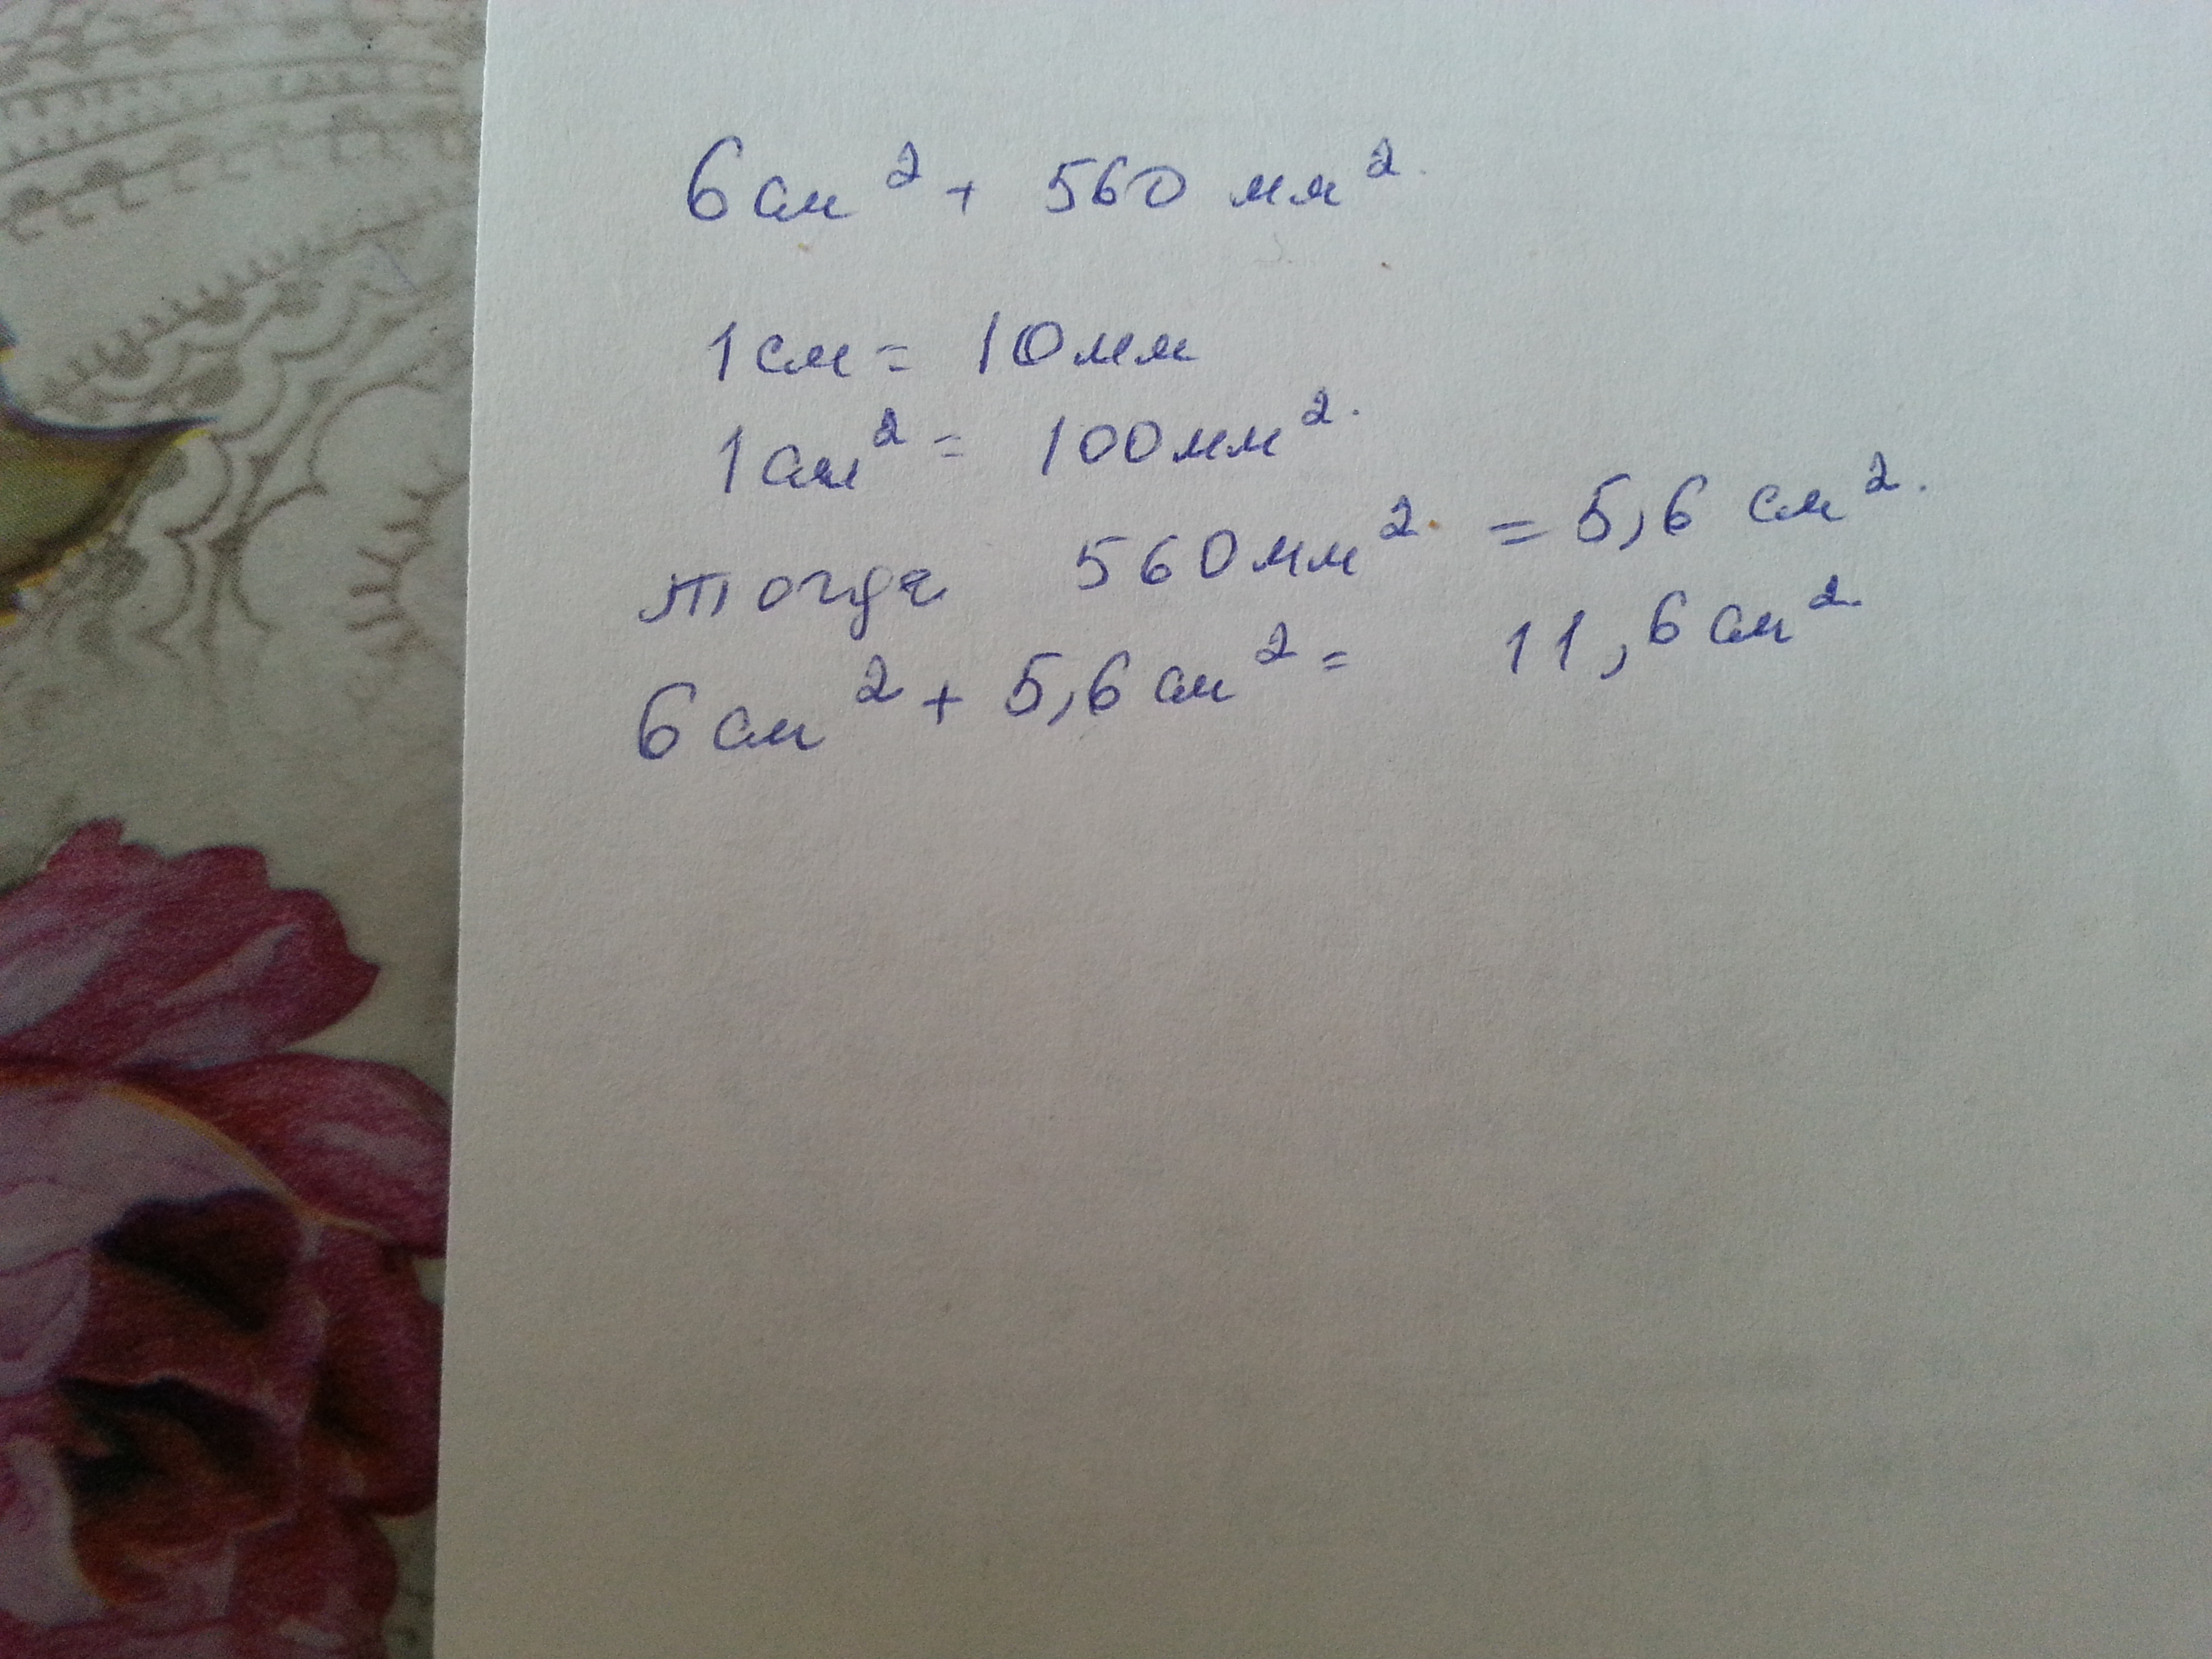 6 см² + 560 мм².
1 см = 10 мм
1 см² = 100 мм².
тогда 560 мм² = 5,6 см².
6 см² + 5,6 см² = 11,6 см²